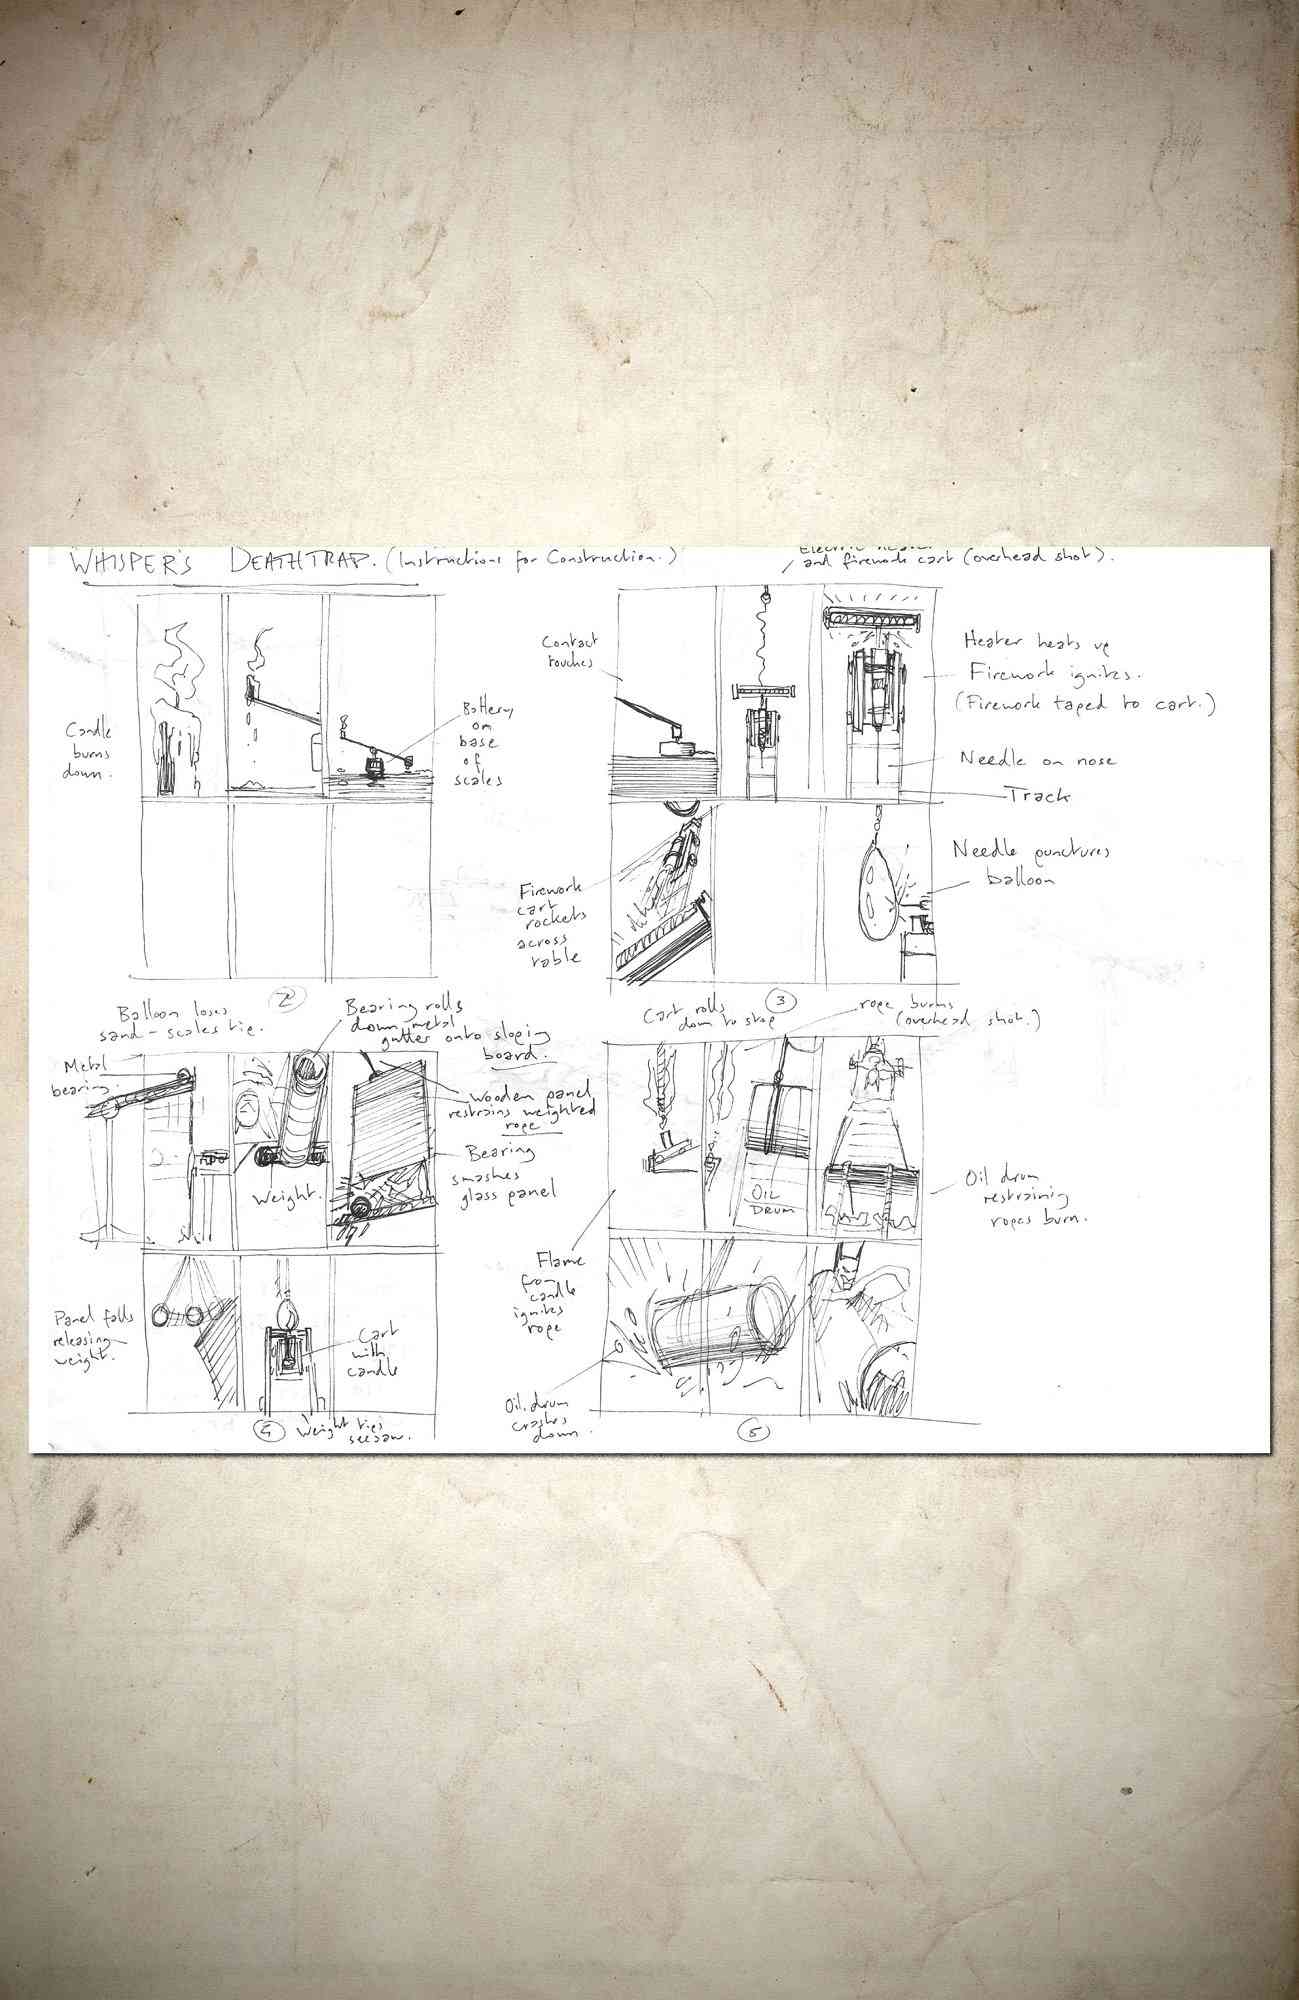 WHISPER'S DEATHTRAP. (Instructions for Construction.)
Candle
burns
down.
Battery
on
base
of
scales
2
Electric heater
/ and firework cart (overhead shot).
Contact
touches
Heater heats up
Firework ignites.
(Firework taped to cart.)
Needle on nose
Track
Firework
cart
rockets
across
table
Needle punctures
balloon
3
Balloon loses
sand - scales tip.
Metal
bearing.
Bearing rolls
down metal
gutter onto sloping
board.
Wooden panel
restrains weighted
rope
Weight.
Bearing
smashes
glass panel
Panel falls
releasing
weight.
Cart
with
candle
4
Weight tips
seesaw.
Cart rolls
down to stop
rope burns
(overhead shot.)
OIL
DRUM
Flame
from
candle
ignites
rope
Oil drum
restraining
ropes burn.
Oil drum
crashes
down.
5